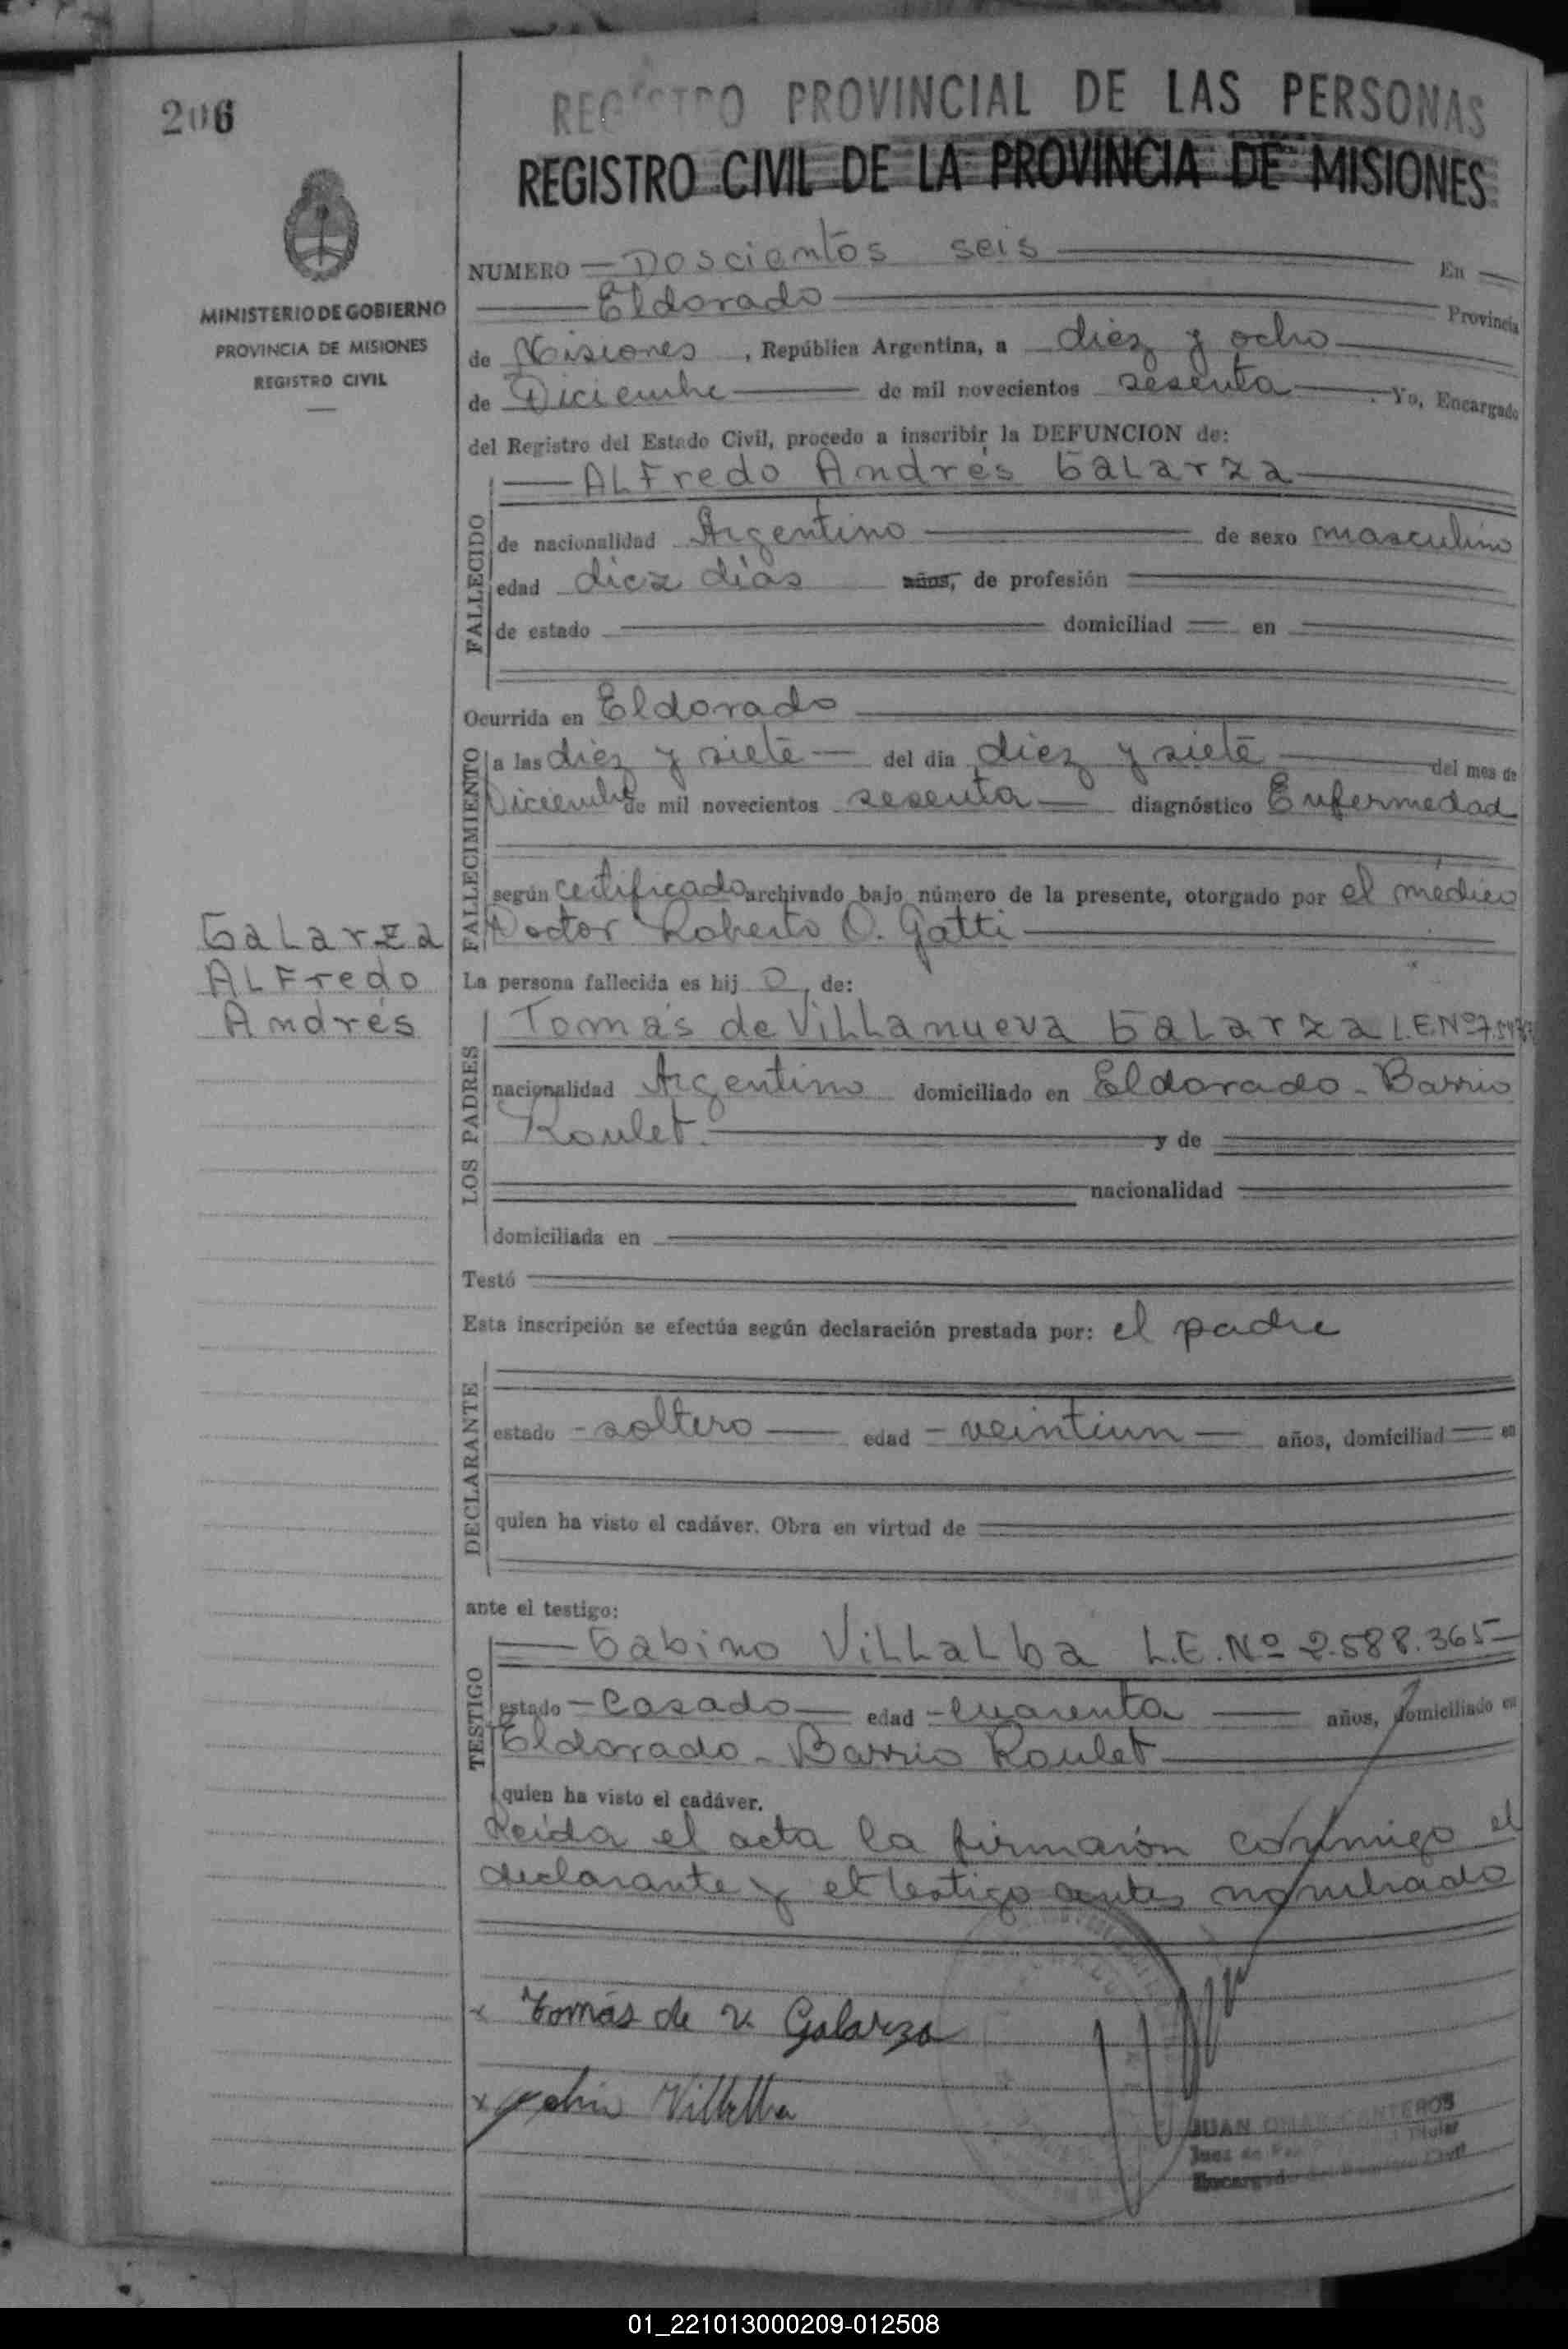 206
REGISTRO PROVINCIAL DE LAS PERSONAS
REGISTRO CIVIL DE LA PROVINCIA DE MISIONES
MINISTERIO DE GOBIERNO
PROVINCIA DE MISIONES
REGISTRO CIVIL
NUMERO Doscientos seis En
Eldorado Provincia
de Misiones, República Argentina, a diez y ocho
de Diciembre de mil novecientos sesenta. Yo, Encargado
del Registro del Estado Civil, procedo a inscribir la DEFUNCION de:
ALFredo Andrés GaLarza
FALLECIDO
de nacionalidad Argentino de sexo masculino
edad diez días años, de profesión
de estado domiciliad en
Ocurrida en Eldorado
FALLECIMIENTO
a las diez y siete del dia diez y siete del mes de
Diciembre de mil novecientos sesenta diagnóstico Enfermedad
según certificado archivado bajo número de la presente, otorgado por el médico
Doctor Roberto O. Gatti
GaLarza
ALFredo
Andrés
La persona fallecida es hij o, de:
LOS PADRES
Tomás de ViLLanueva GaLarza L.E.Nº
nacionalidad Argentino domiciliado en Eldorado - Barrio
Roulet. y de
nacionalidad
domiciliada en
Testó
Esta inscripción se efectúa según declaración prestada por: el padre
DECLARANTE
estado - soltero edad - veintiun años, domiciliad en
quien ha visto el cadáver. Obra en virtud de
ante el testigo:
TESTIGO
Gabino ViLLaLba L.E.Nº 2.588.365
estado - casado edad - cuarenta años, domiciliado en
Eldorado - Barrio Roulet
quien ha visto el cadáver.
Leida el acta la firmarón conmigo el
declarante y el testigo antes nombrado
x Tomás de V. Galarza
x Villalba
JUAN OMAR CANTEROS
Juez de Paz Titular
Encargado del Registro Civil
01_221013000209-012508